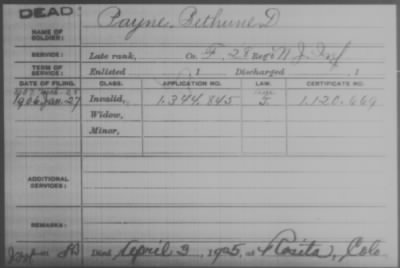 DEAD
NAME OF SOLDIER: Payne, Bethune D
SERVICE: Late rank, Co. F, 28 Reg't N. J. Inf
TERM OF SERVICE: Enlisted , 1 Discharged , 1
DATE OF FILING. CLASS. APPLICATION NO. LAW. CERTIFICATE NO.
1906 Jan. 27 Invalid, 1.344.845 F. 1.120.669
Widow,
Minor,
ADDITIONAL SERVICES:
REMARKS:
Died April 3, 1925, at Florita, Colo